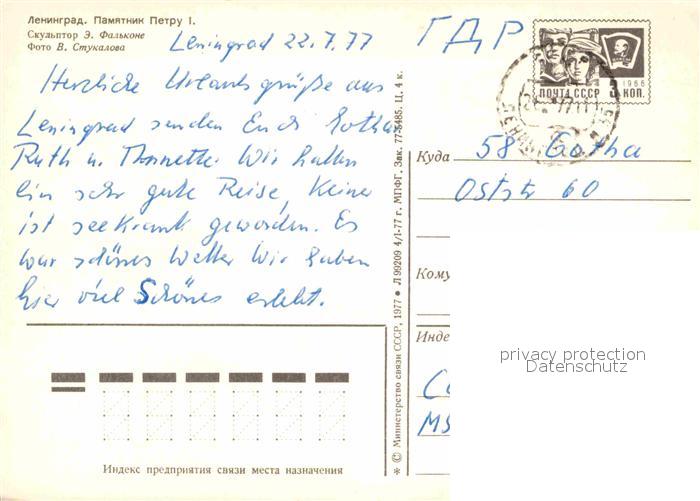 Ленинград. Памятник Петру I.
Скульптор Э. Фальконе
Фото В. Стукалова
Leningrad 22.7.77
Herzliche Urlaubsgrüße aus
Leningrad senden Euch Lothar
Ruth u. Annette. Wir hatten
ein sehr gute Reise, keiner
ist seekrank geworden. Es
war schönes Wetter Wir haben
hier viel Schönes erlebt.
Индекс предприятия связи места назначения
* © Министерство связи СССР, 1977 • Л 99209 4/I-77 г. МПФГ, Зак. 77-5485. Ц. 4 к.
ГДР
1966
ПОЧТА СССР 3 КОП.
Куда 58 Gotha
Oststr 60
Кому
Инде
privacy protection
Datenschutz